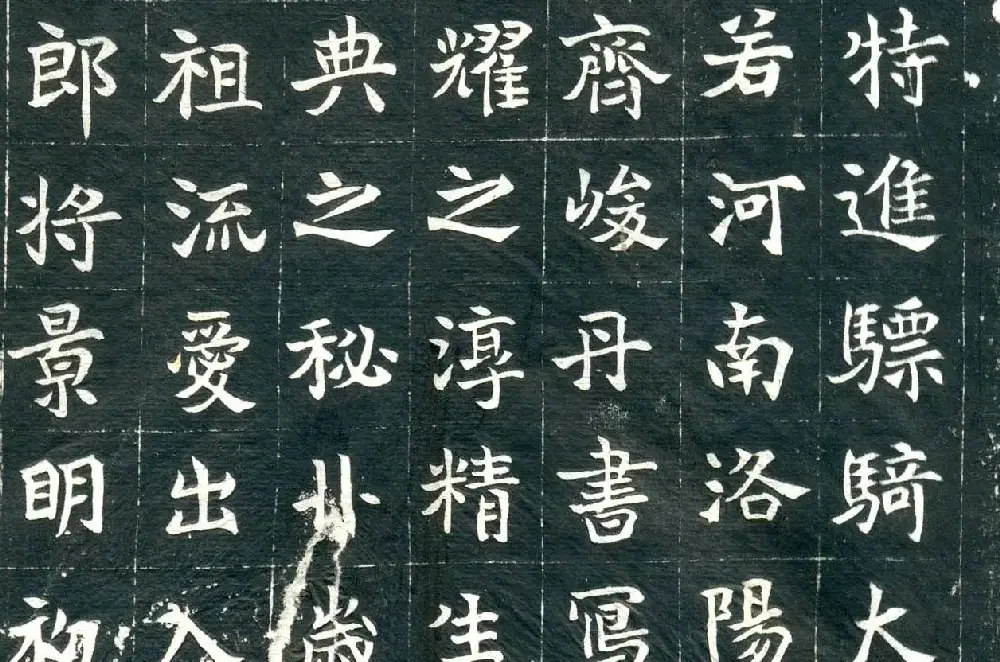 特進驃騎大
若河南洛陽
齊峻丹書寫
耀之淳精生
典之秘歲
祖流愛出入
郎將景明初